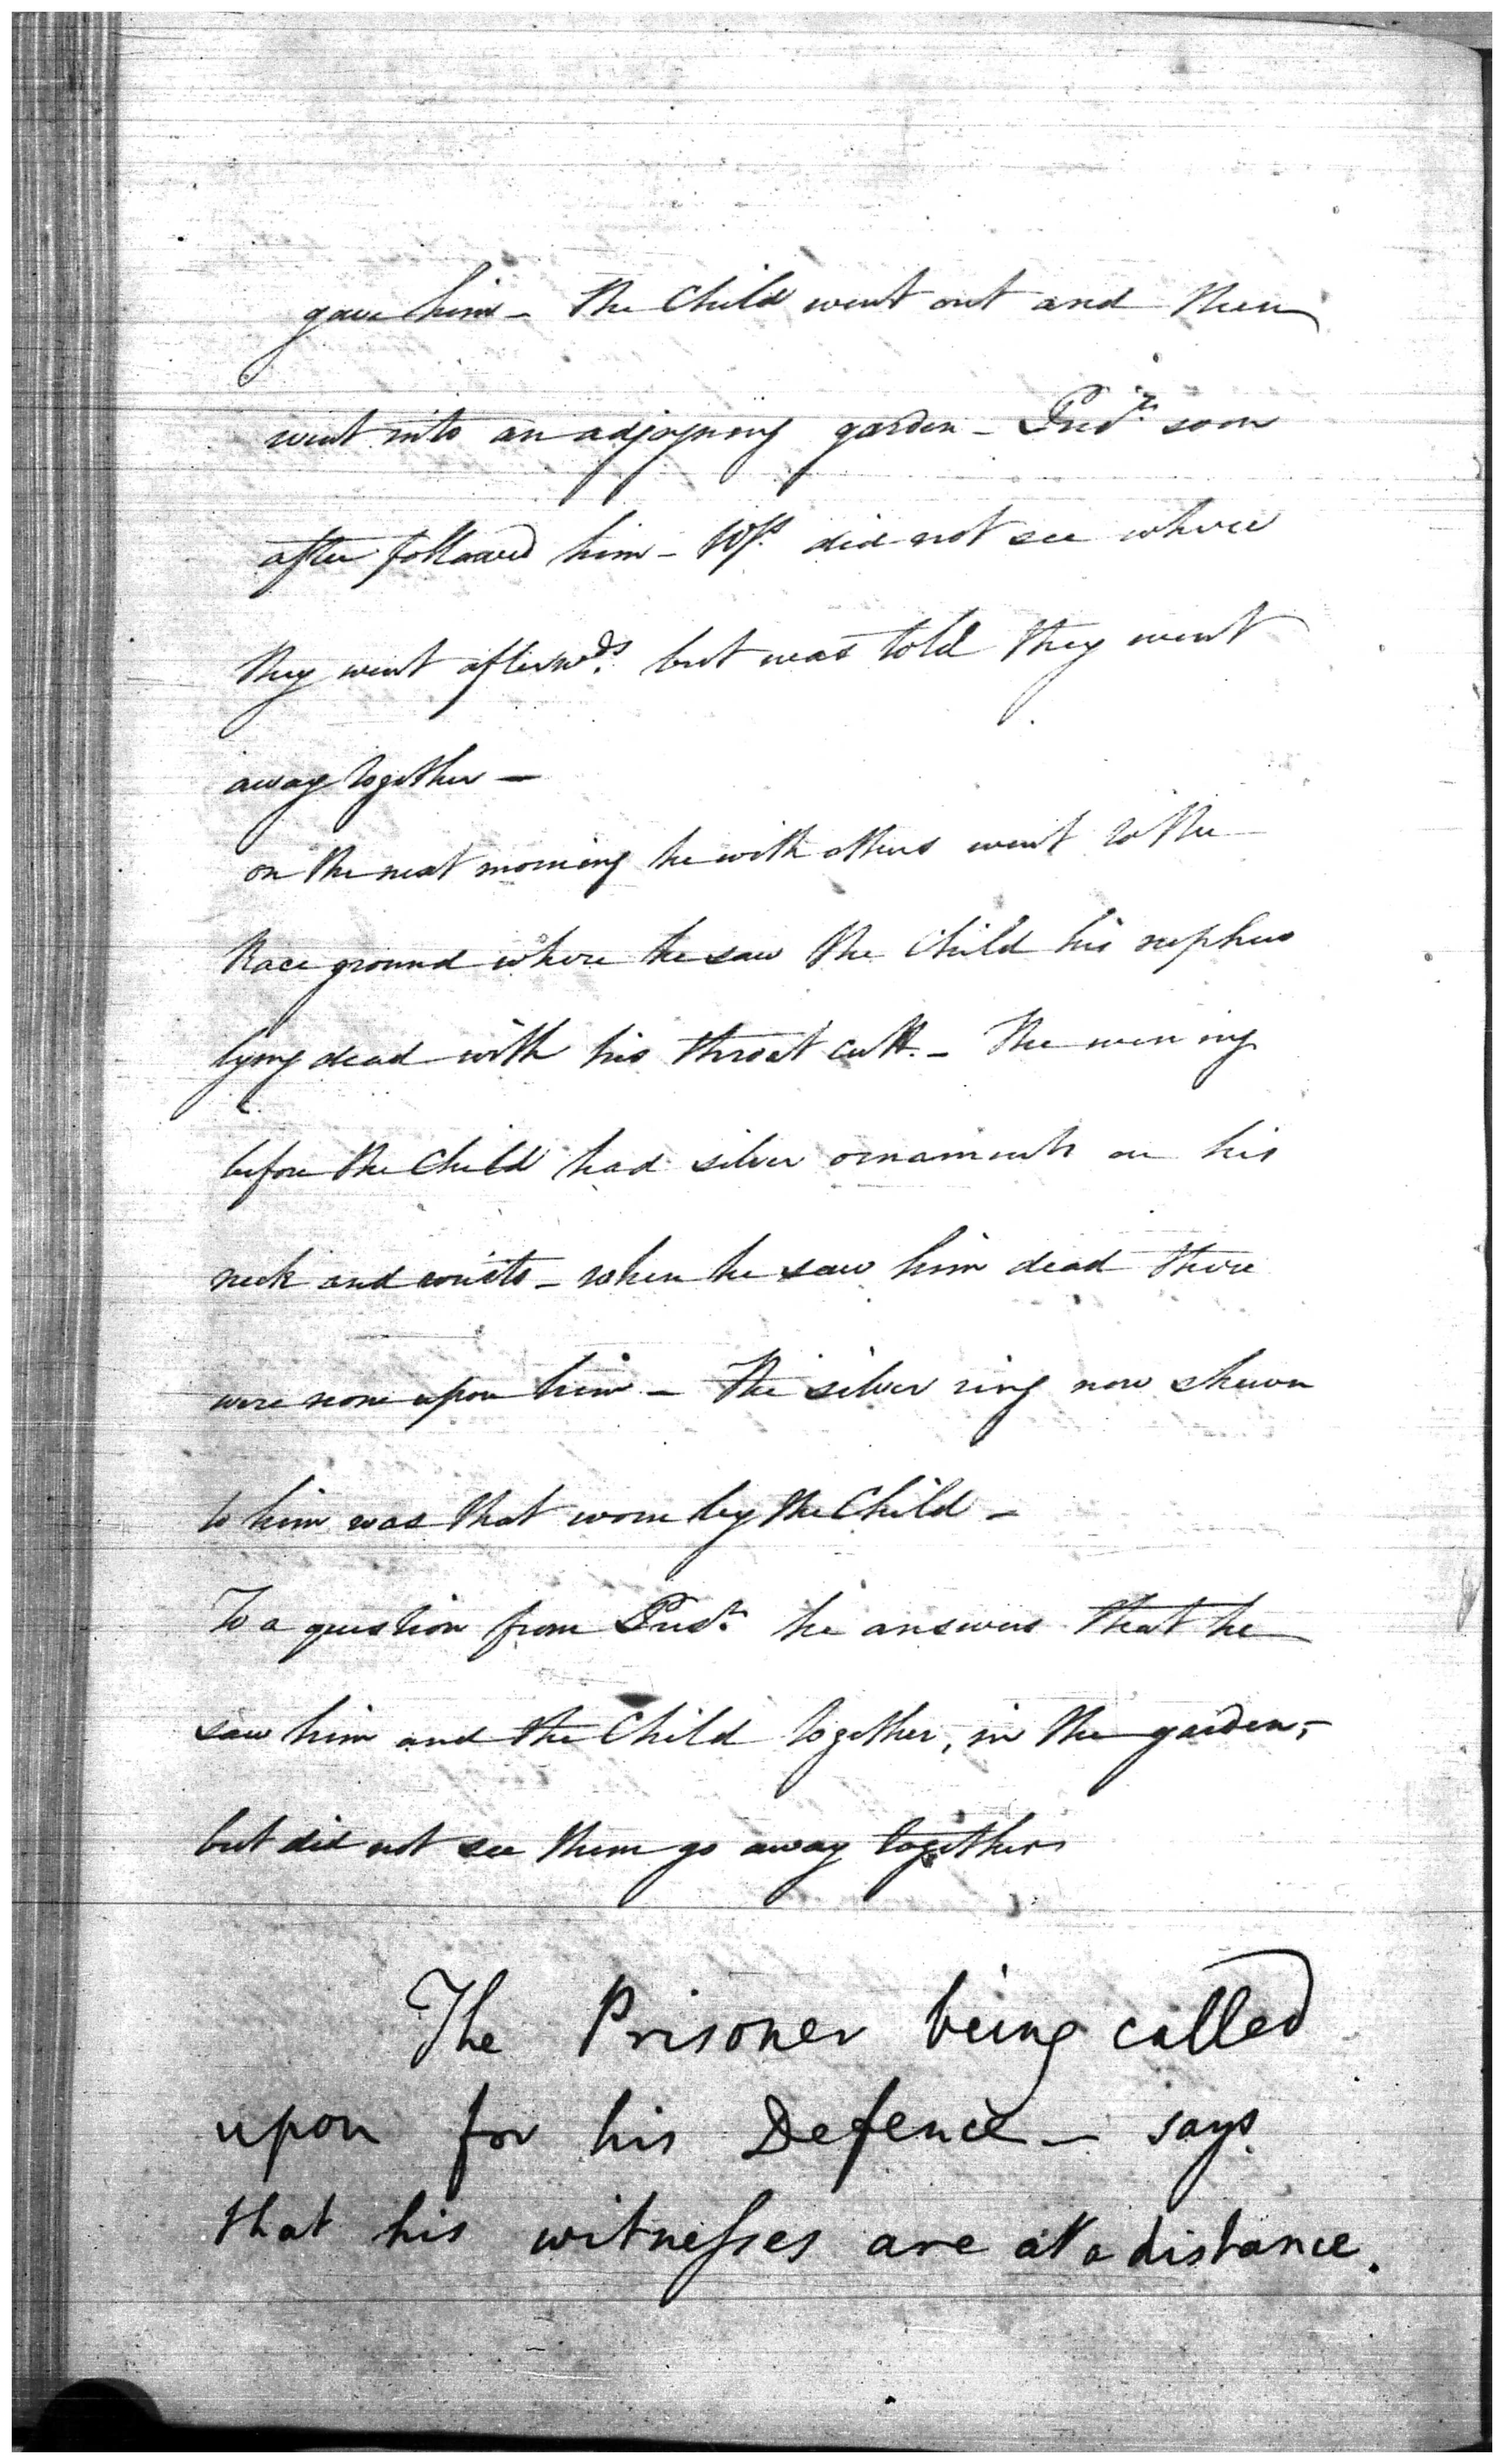 gave him - The Child went out and then
went into an adjoyning garden - Prisr. soon
after followed him - Wss. did not see where
they went afterwds. but was told they went
away together -
on the next morning he with others went to the
Race ground where he saw the Child his nephew
lying dead with his throat cutt. - The evening
before the Child had silver ornaments on his
neck and wrists - when he saw him dead there
were none upon him - The silver ring now shewn
to him was that worn by the Child -
To a question from Prisr. he answers that he
saw him and the Child together, in the garden, -
but did not see them go away together
The Prisoner being called
upon for his Defence - says
that his witnesses are at a distance.